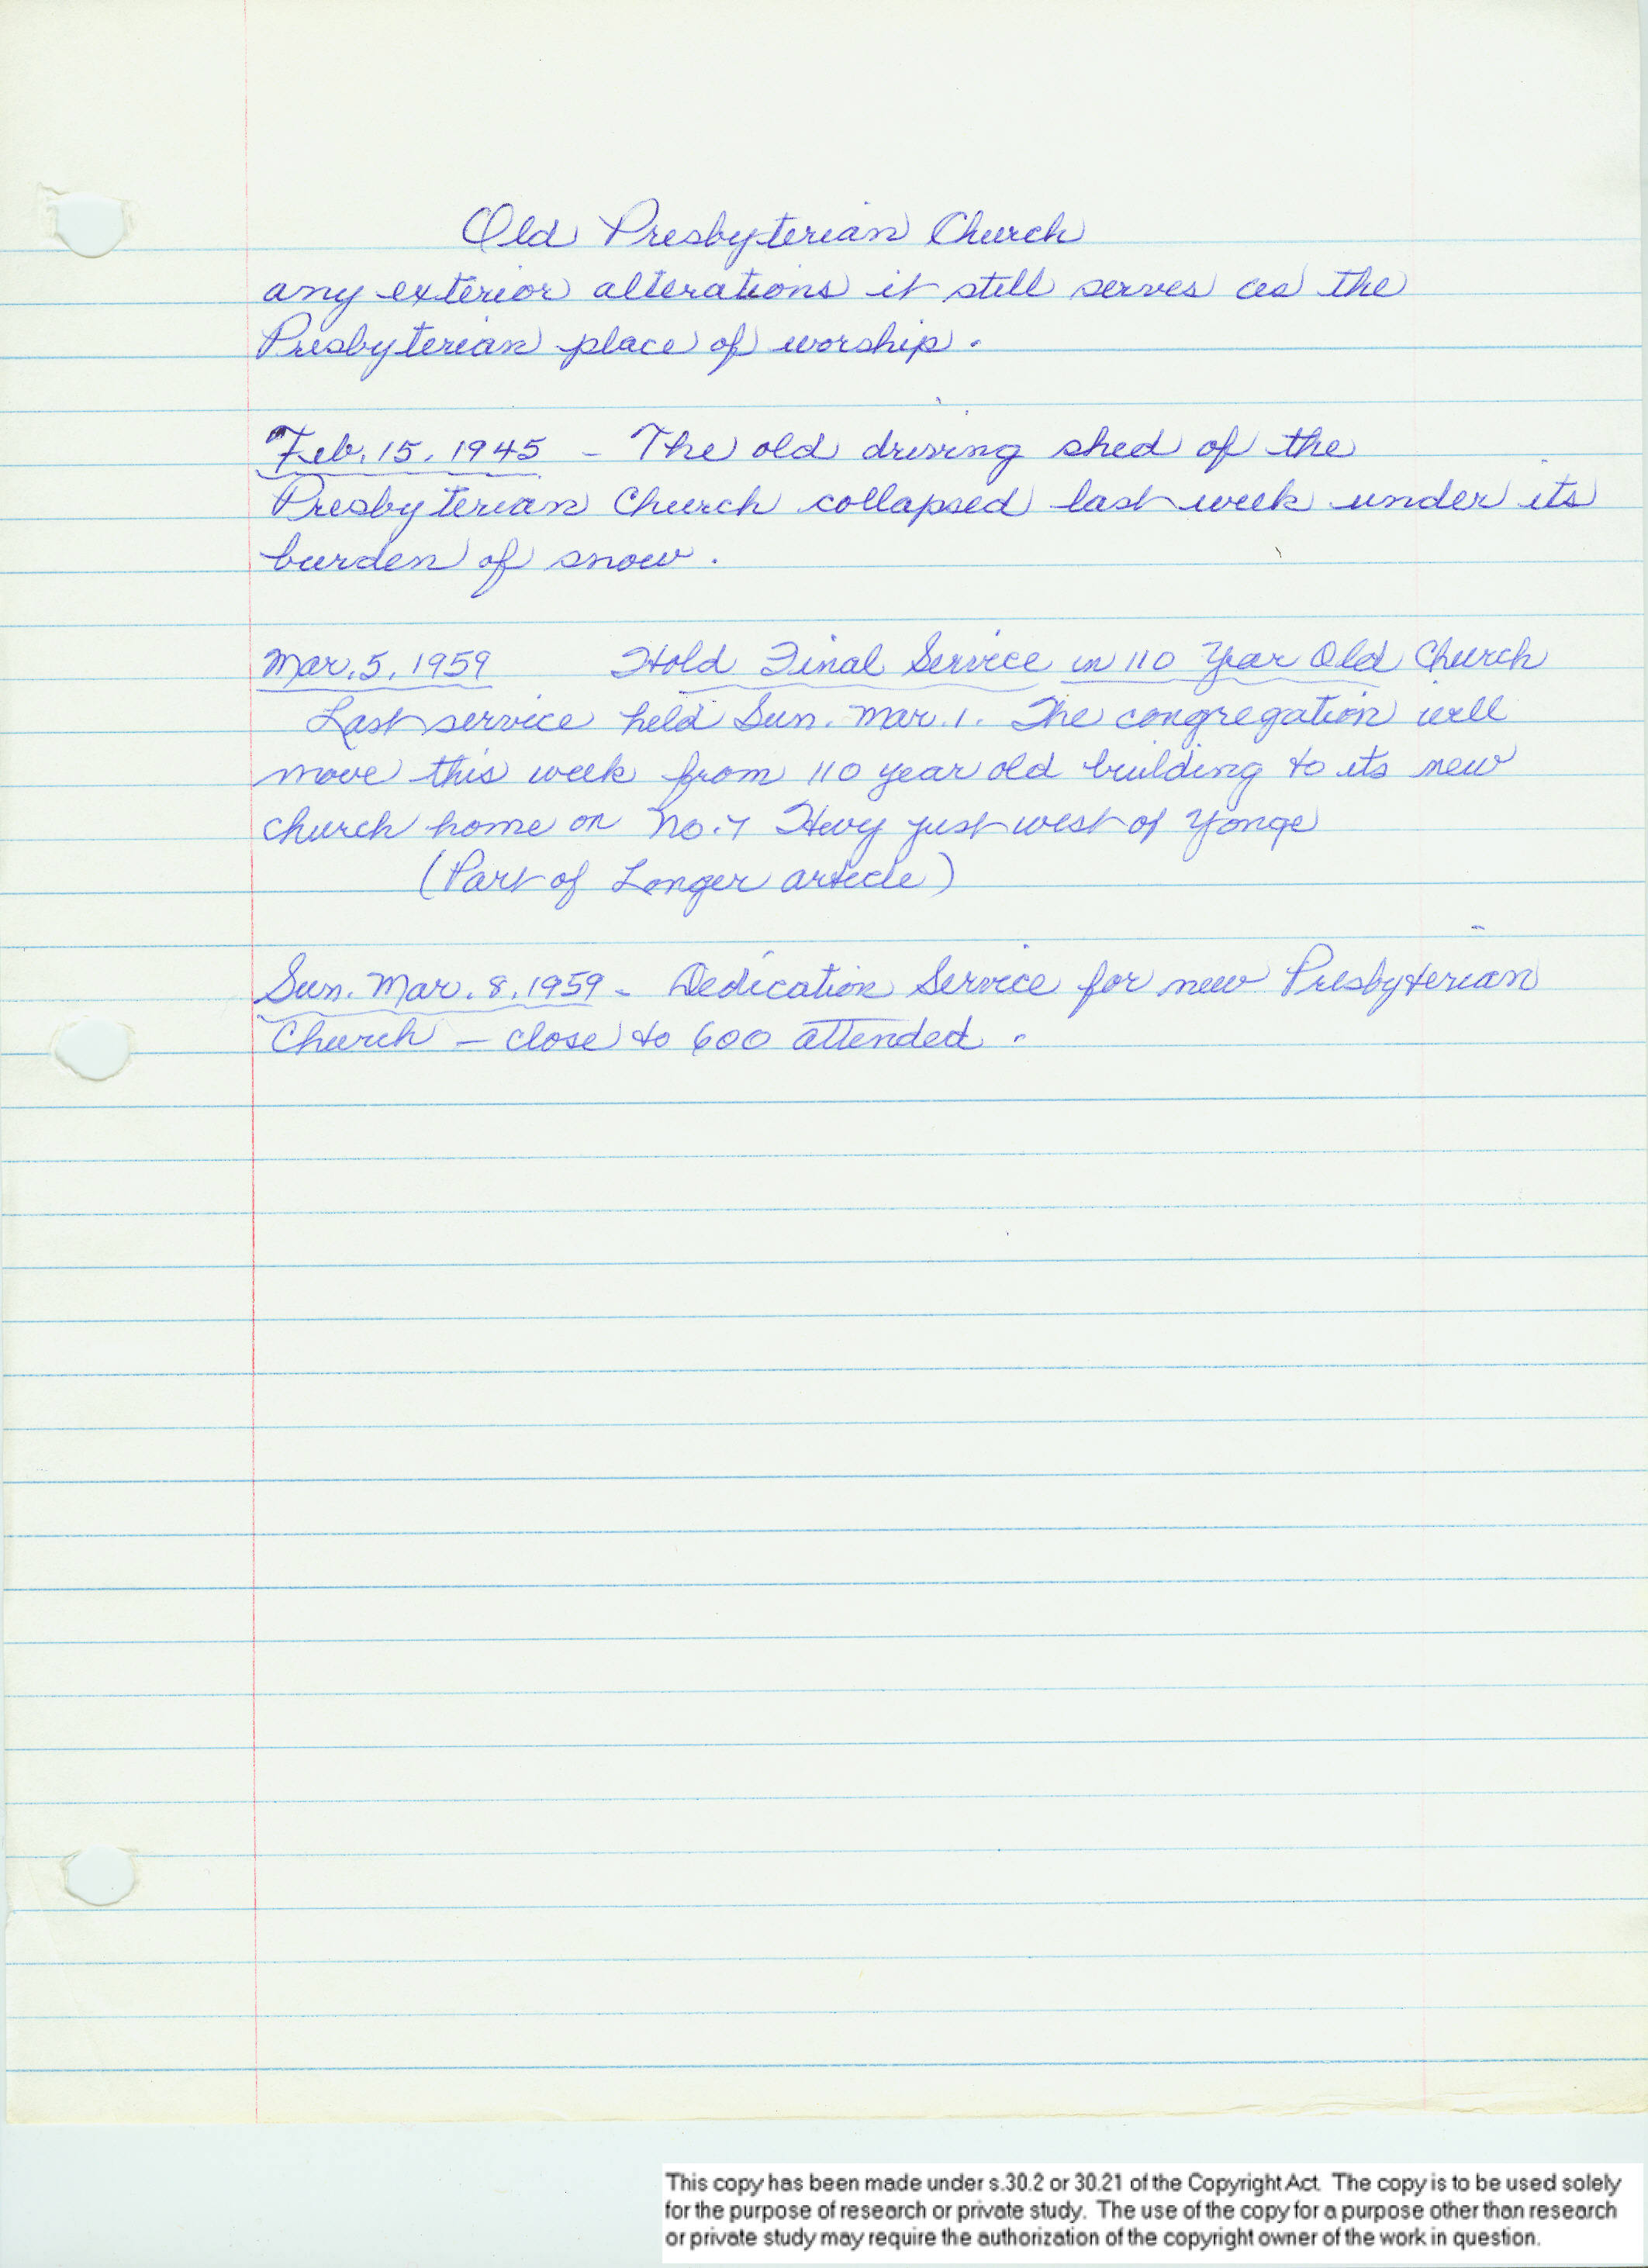 Old Presbyterian Church
any exterior alterations it still serves as the
Presbyterian place of worship.
Feb. 15, 1945 - The old driving shed of the
Presbyterian Church collapsed last week under its
burden of snow.
Mar. 5, 1959 Hold Final Service in 110 Year Old Church
Last service held Sun. Mar. 1. The congregation will
move this week from 110 year old building to its new
church home on No. 7 Hwy just west of Yonge
(Part of Longer article)
Sun. Mar. 8, 1959 - Dedication Service for new Presbyterian
Church - close to 600 attended.
This copy has been made under s.30.2 or 30.21 of the Copyright Act. The copy is to be used solely
for the purpose of research or private study. The use of the copy for a purpose other than research
or private study may require the authorization of the copyright owner of the work in question.